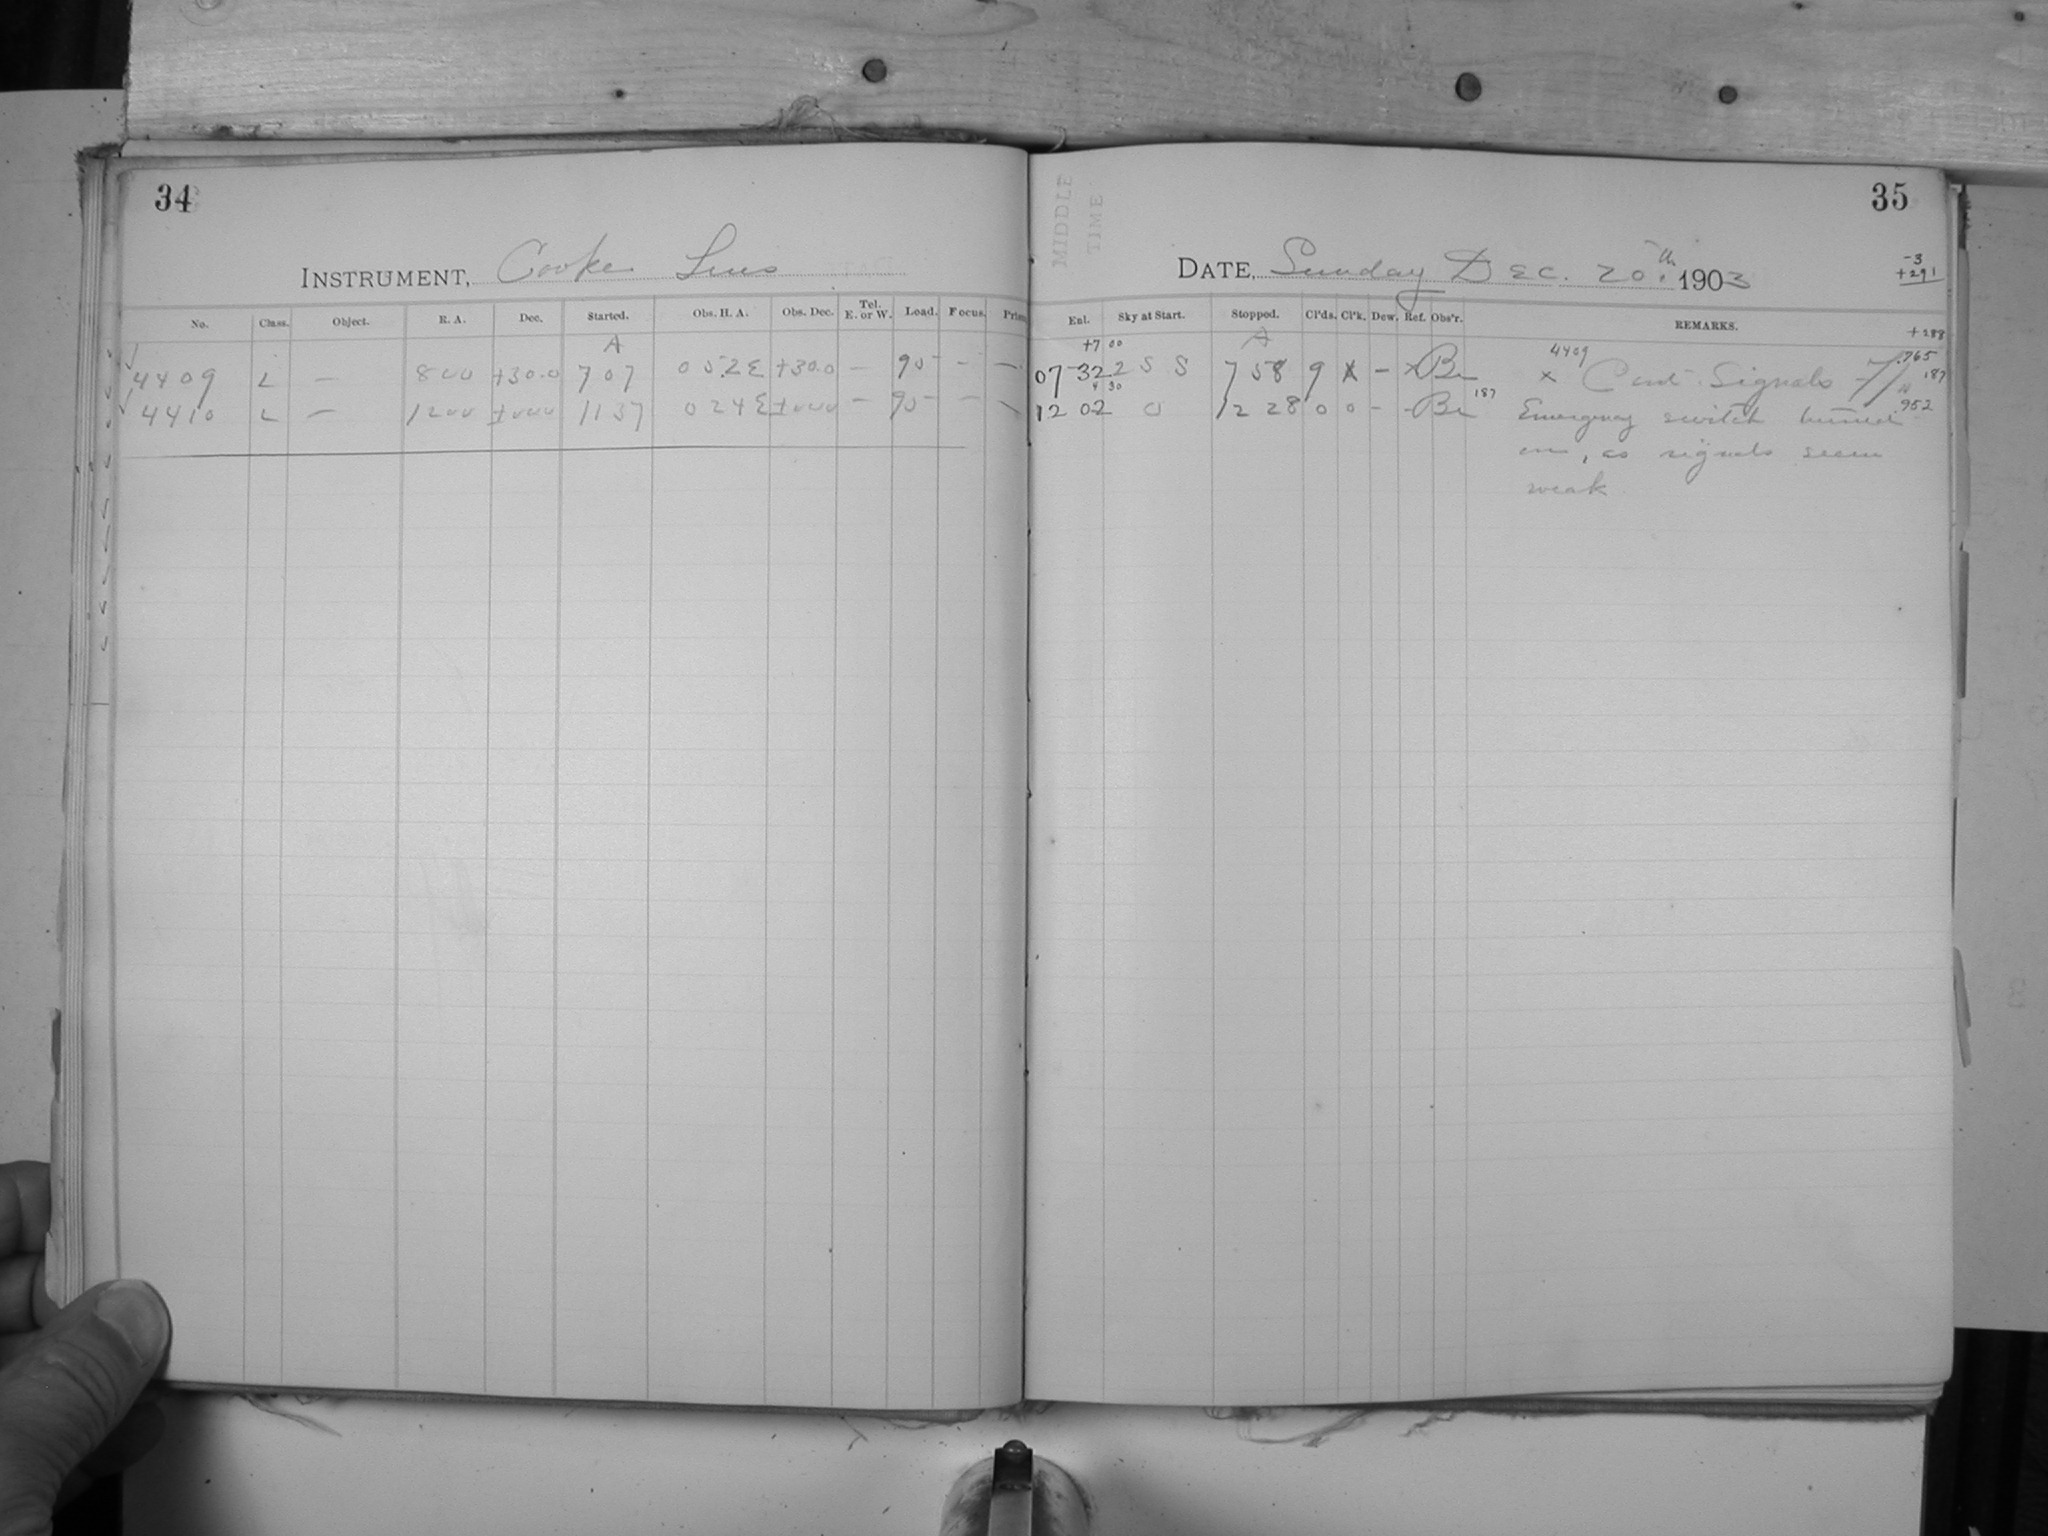 34
INSTRUMENT, Cooke Lens
No. Class. Object. R. A. Dec. Started. Obs. H. A. Obs. Dec. Tel. E. or W. Load. Focus.
A
4409 L — 8 00 +30.0 7 07 0 52 E +30.0 — 90 — —
4410 L — 12 00 11 37 0 24 E — 90 —
MIDDLE
TIME
35
DATE, Sunday Dec. 20th 1903
-3
+291
+288
Enl. Sky at Start. Stopped. Cl'ds. Cl'k. Dew. Ref. Obs'r. REMARKS.
+7 00 A 4409 .765
07 32 2 S S 7 58 9 x — x x Cont. Signals 187
4 30 187 952
12 02 0 12 28 0 0 - - Emergency switch turned
on, as signals seem
weak